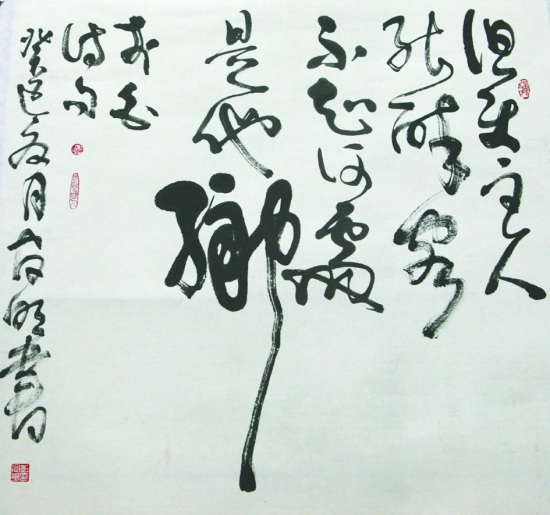 但使主人
能醉客
不知何處
是他鄉
李白
诗句
癸巳夏月明書